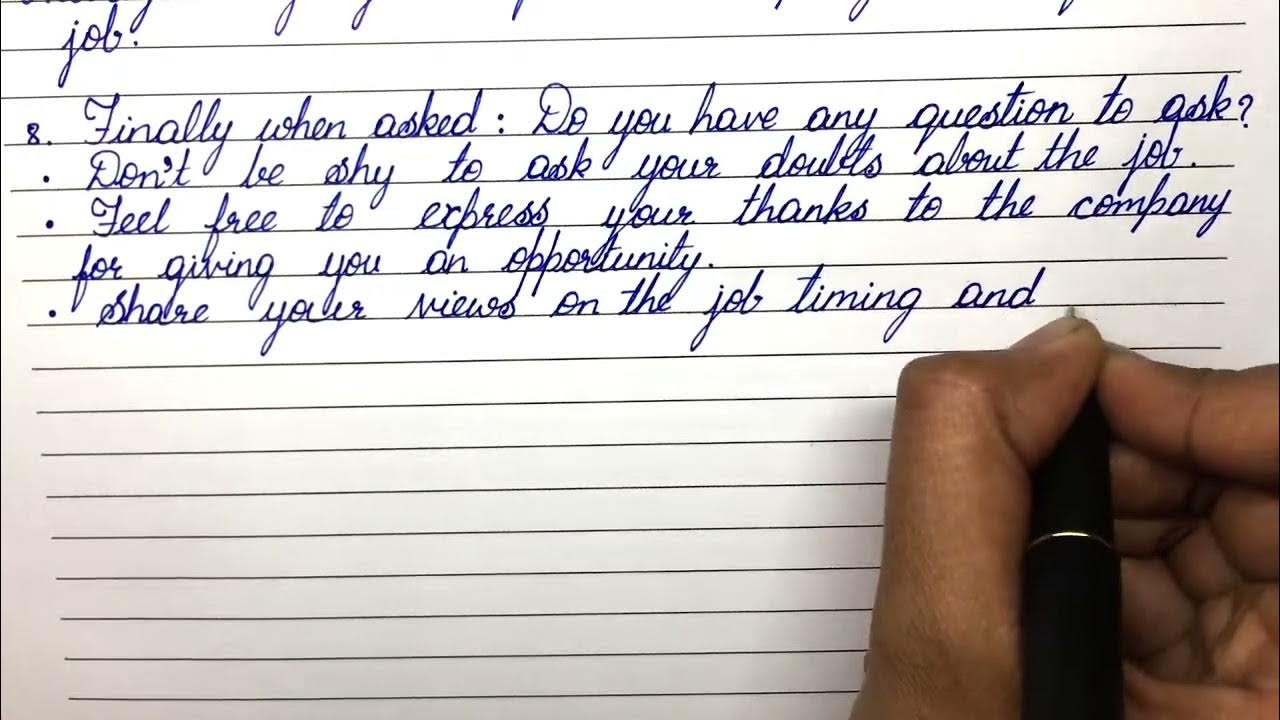 job.
8. Finally when asked : Do you have any question to ask?
• Don't be shy to ask your doubts about the job.
• Feel free to express your thanks to the company
for giving you an opportunity.
• Share your views on the job timing and